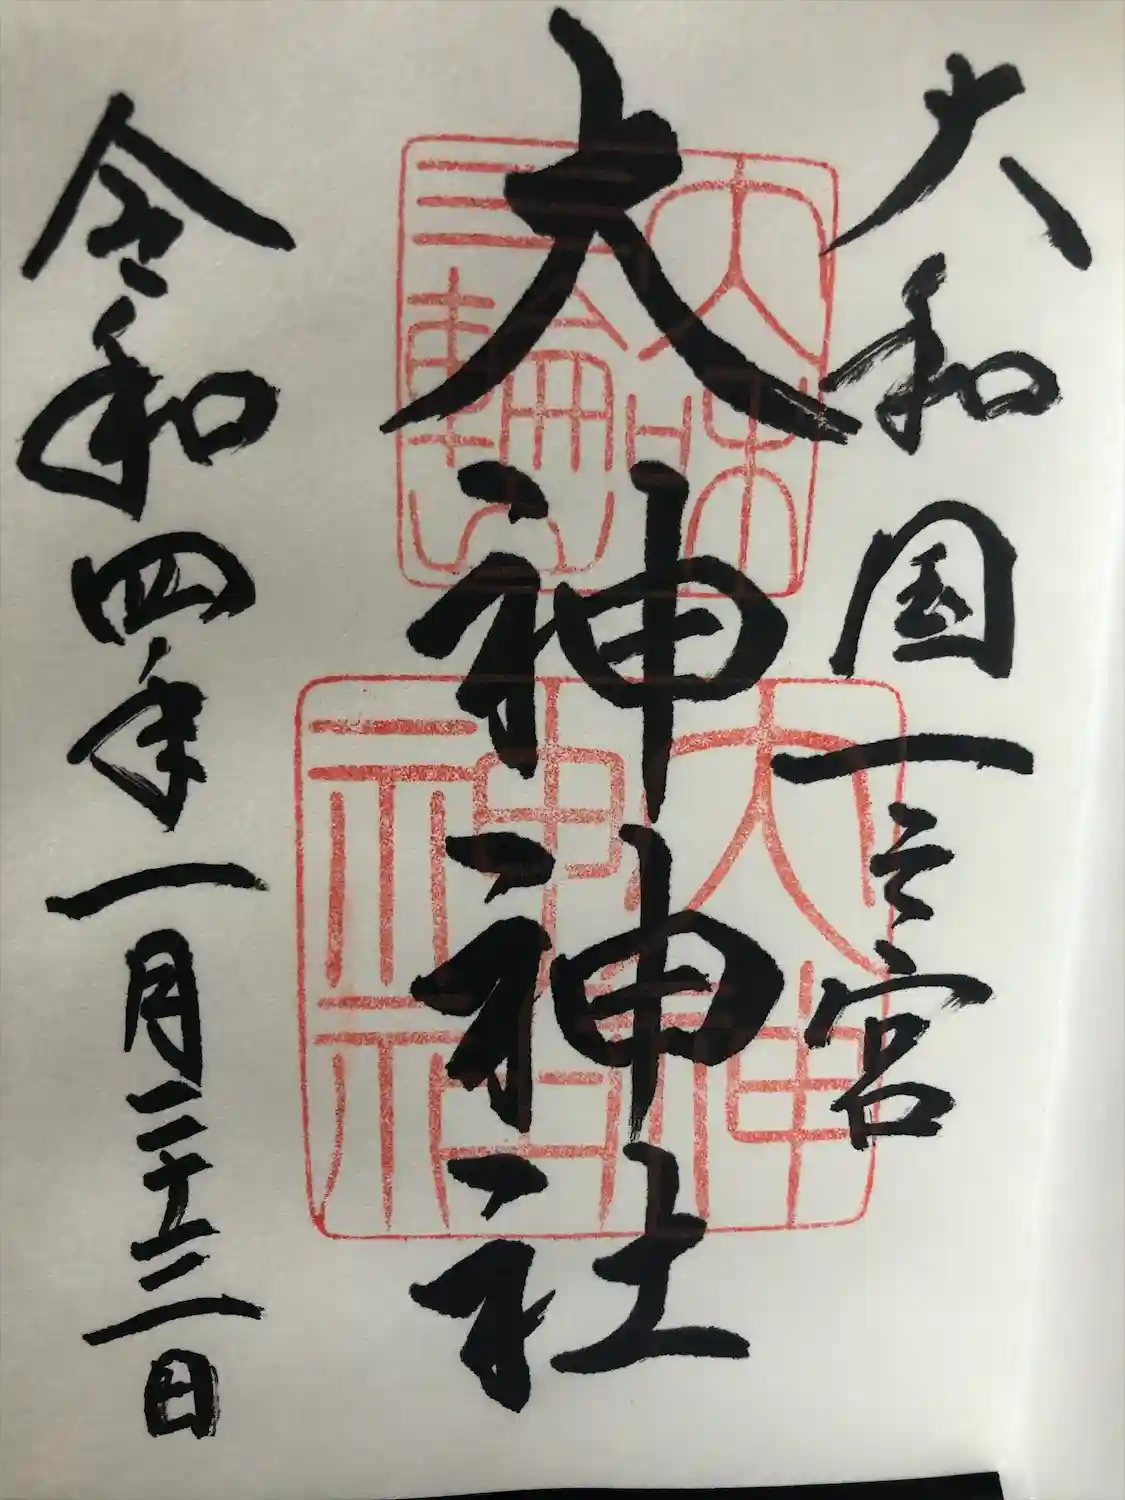 大和国一之宮
大神神社
大神神社
令和四年一月二十三日